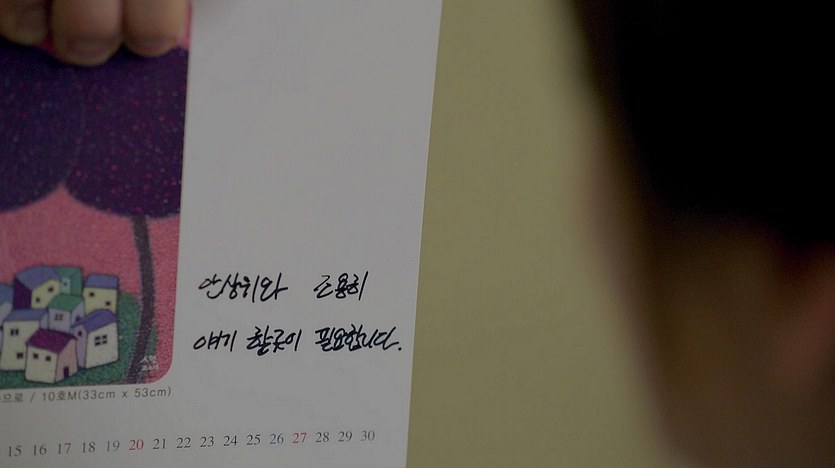 안상위와 조용히
얘기 할곳이 필요합니다.
으로 / 10호M(33cm x 53cm)
15 16 17 18 19 20 21 22 23 24 25 26 27 28 29 30